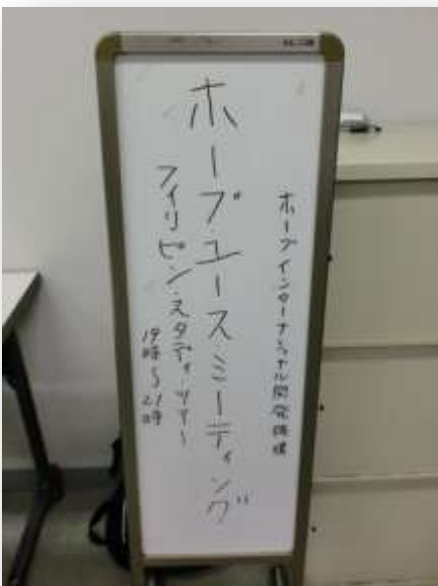 ホープインターナショナル開発機構
ホープユースミーティング
フィリピン・スタディーツアー
19時〜21時